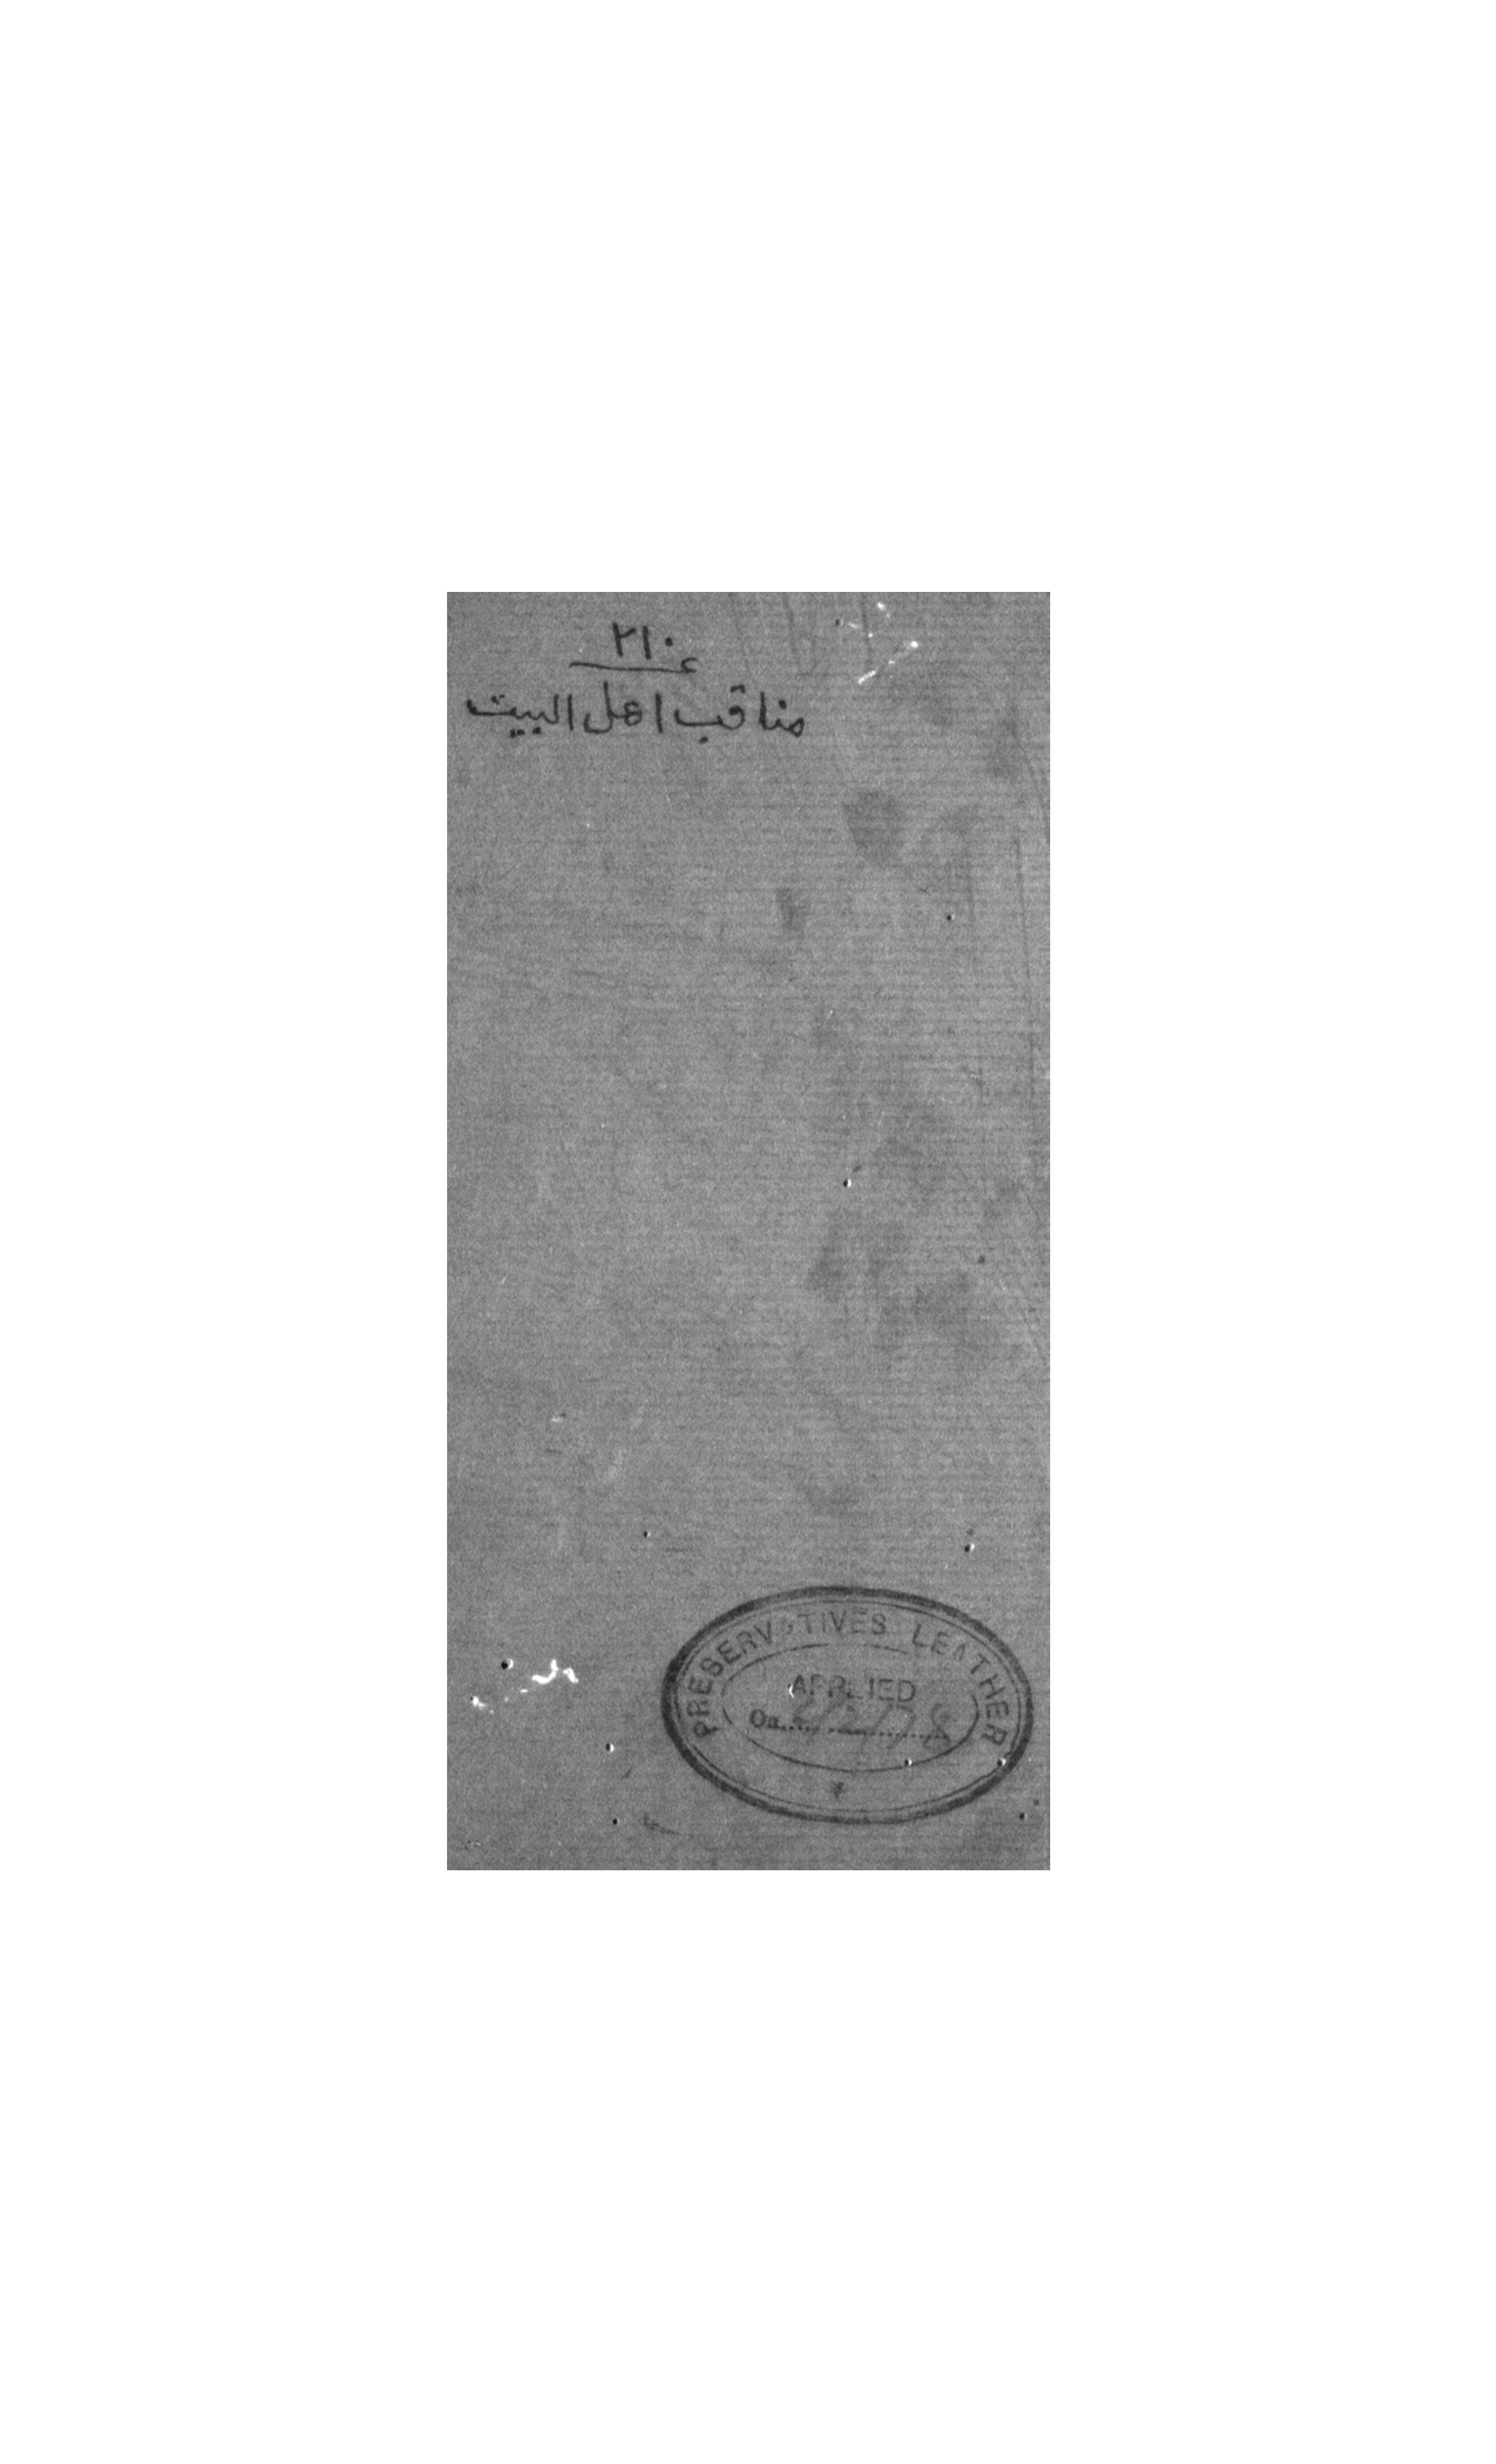 ٢١٠
مناقب اهل البيت
PRESERVATIVES LEATHER
APPLIED
On